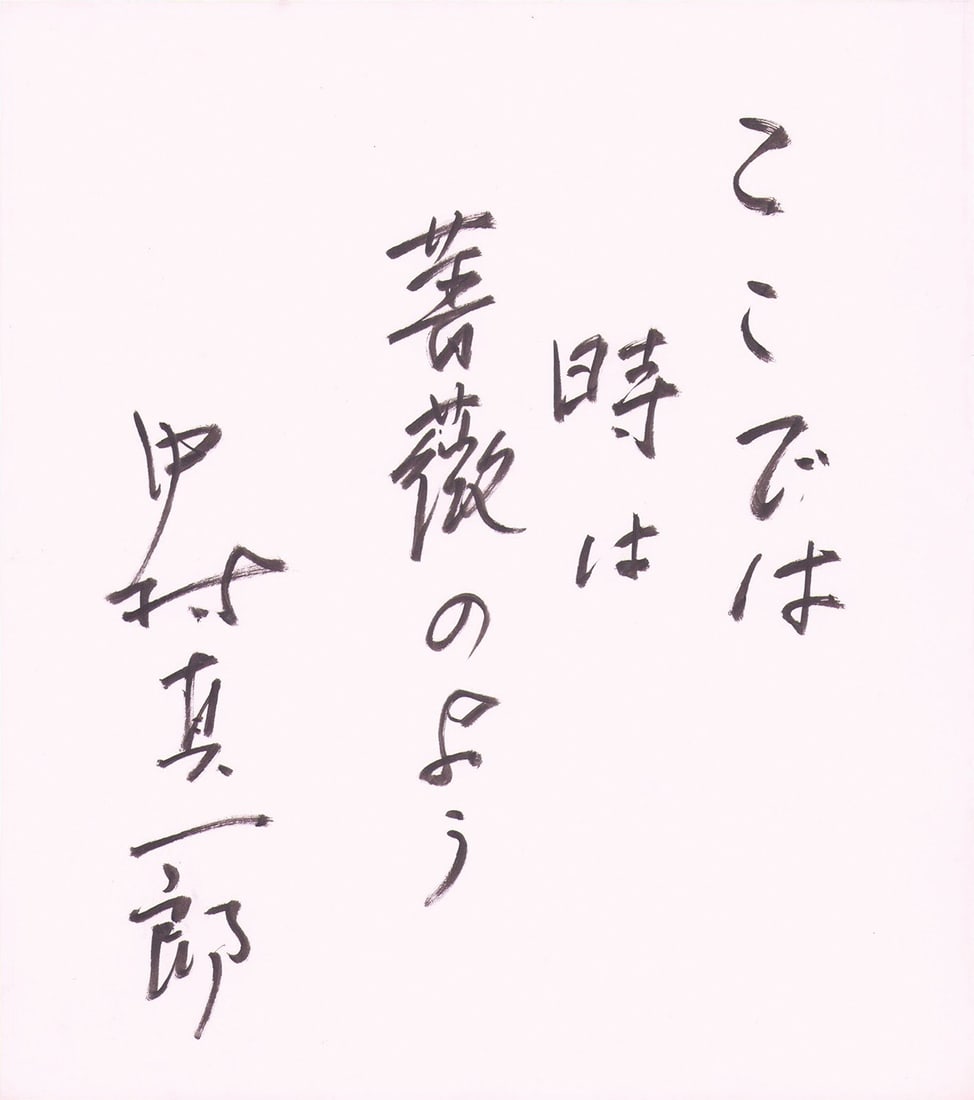 ここでは
時は
薔薇のよう
中村真一郎